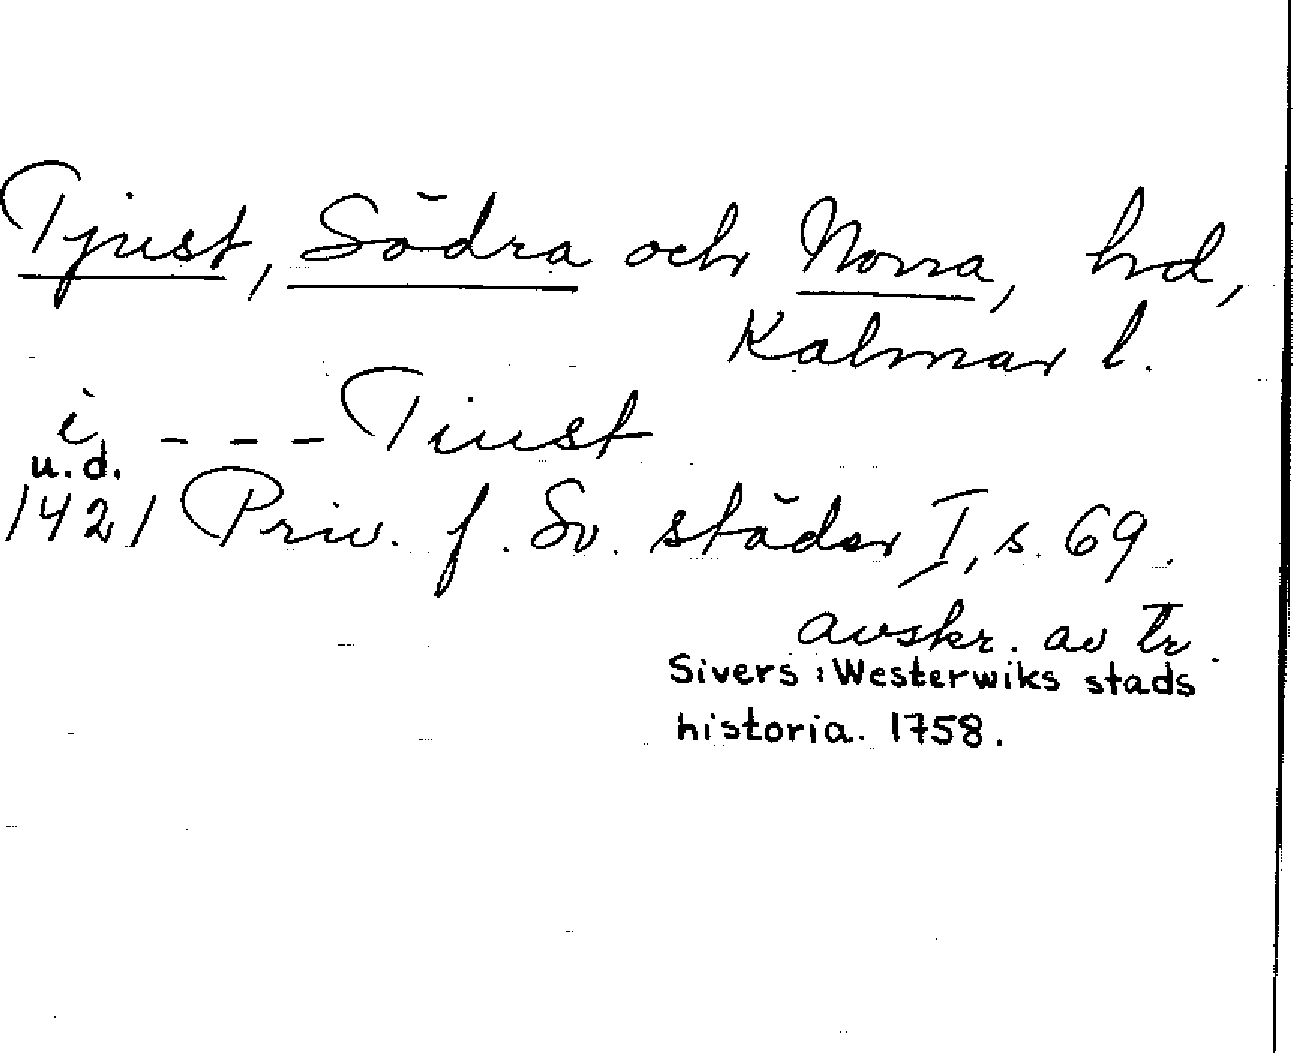 Tjust, Södra och Norra, hd,
Kalmar l.
i, - - - Tiust
u.d.
1421 Priv. f. Sv. städer I, s. 69.
avskr. av tr.
Sivers: Westerwiks stads
historia. 1758.